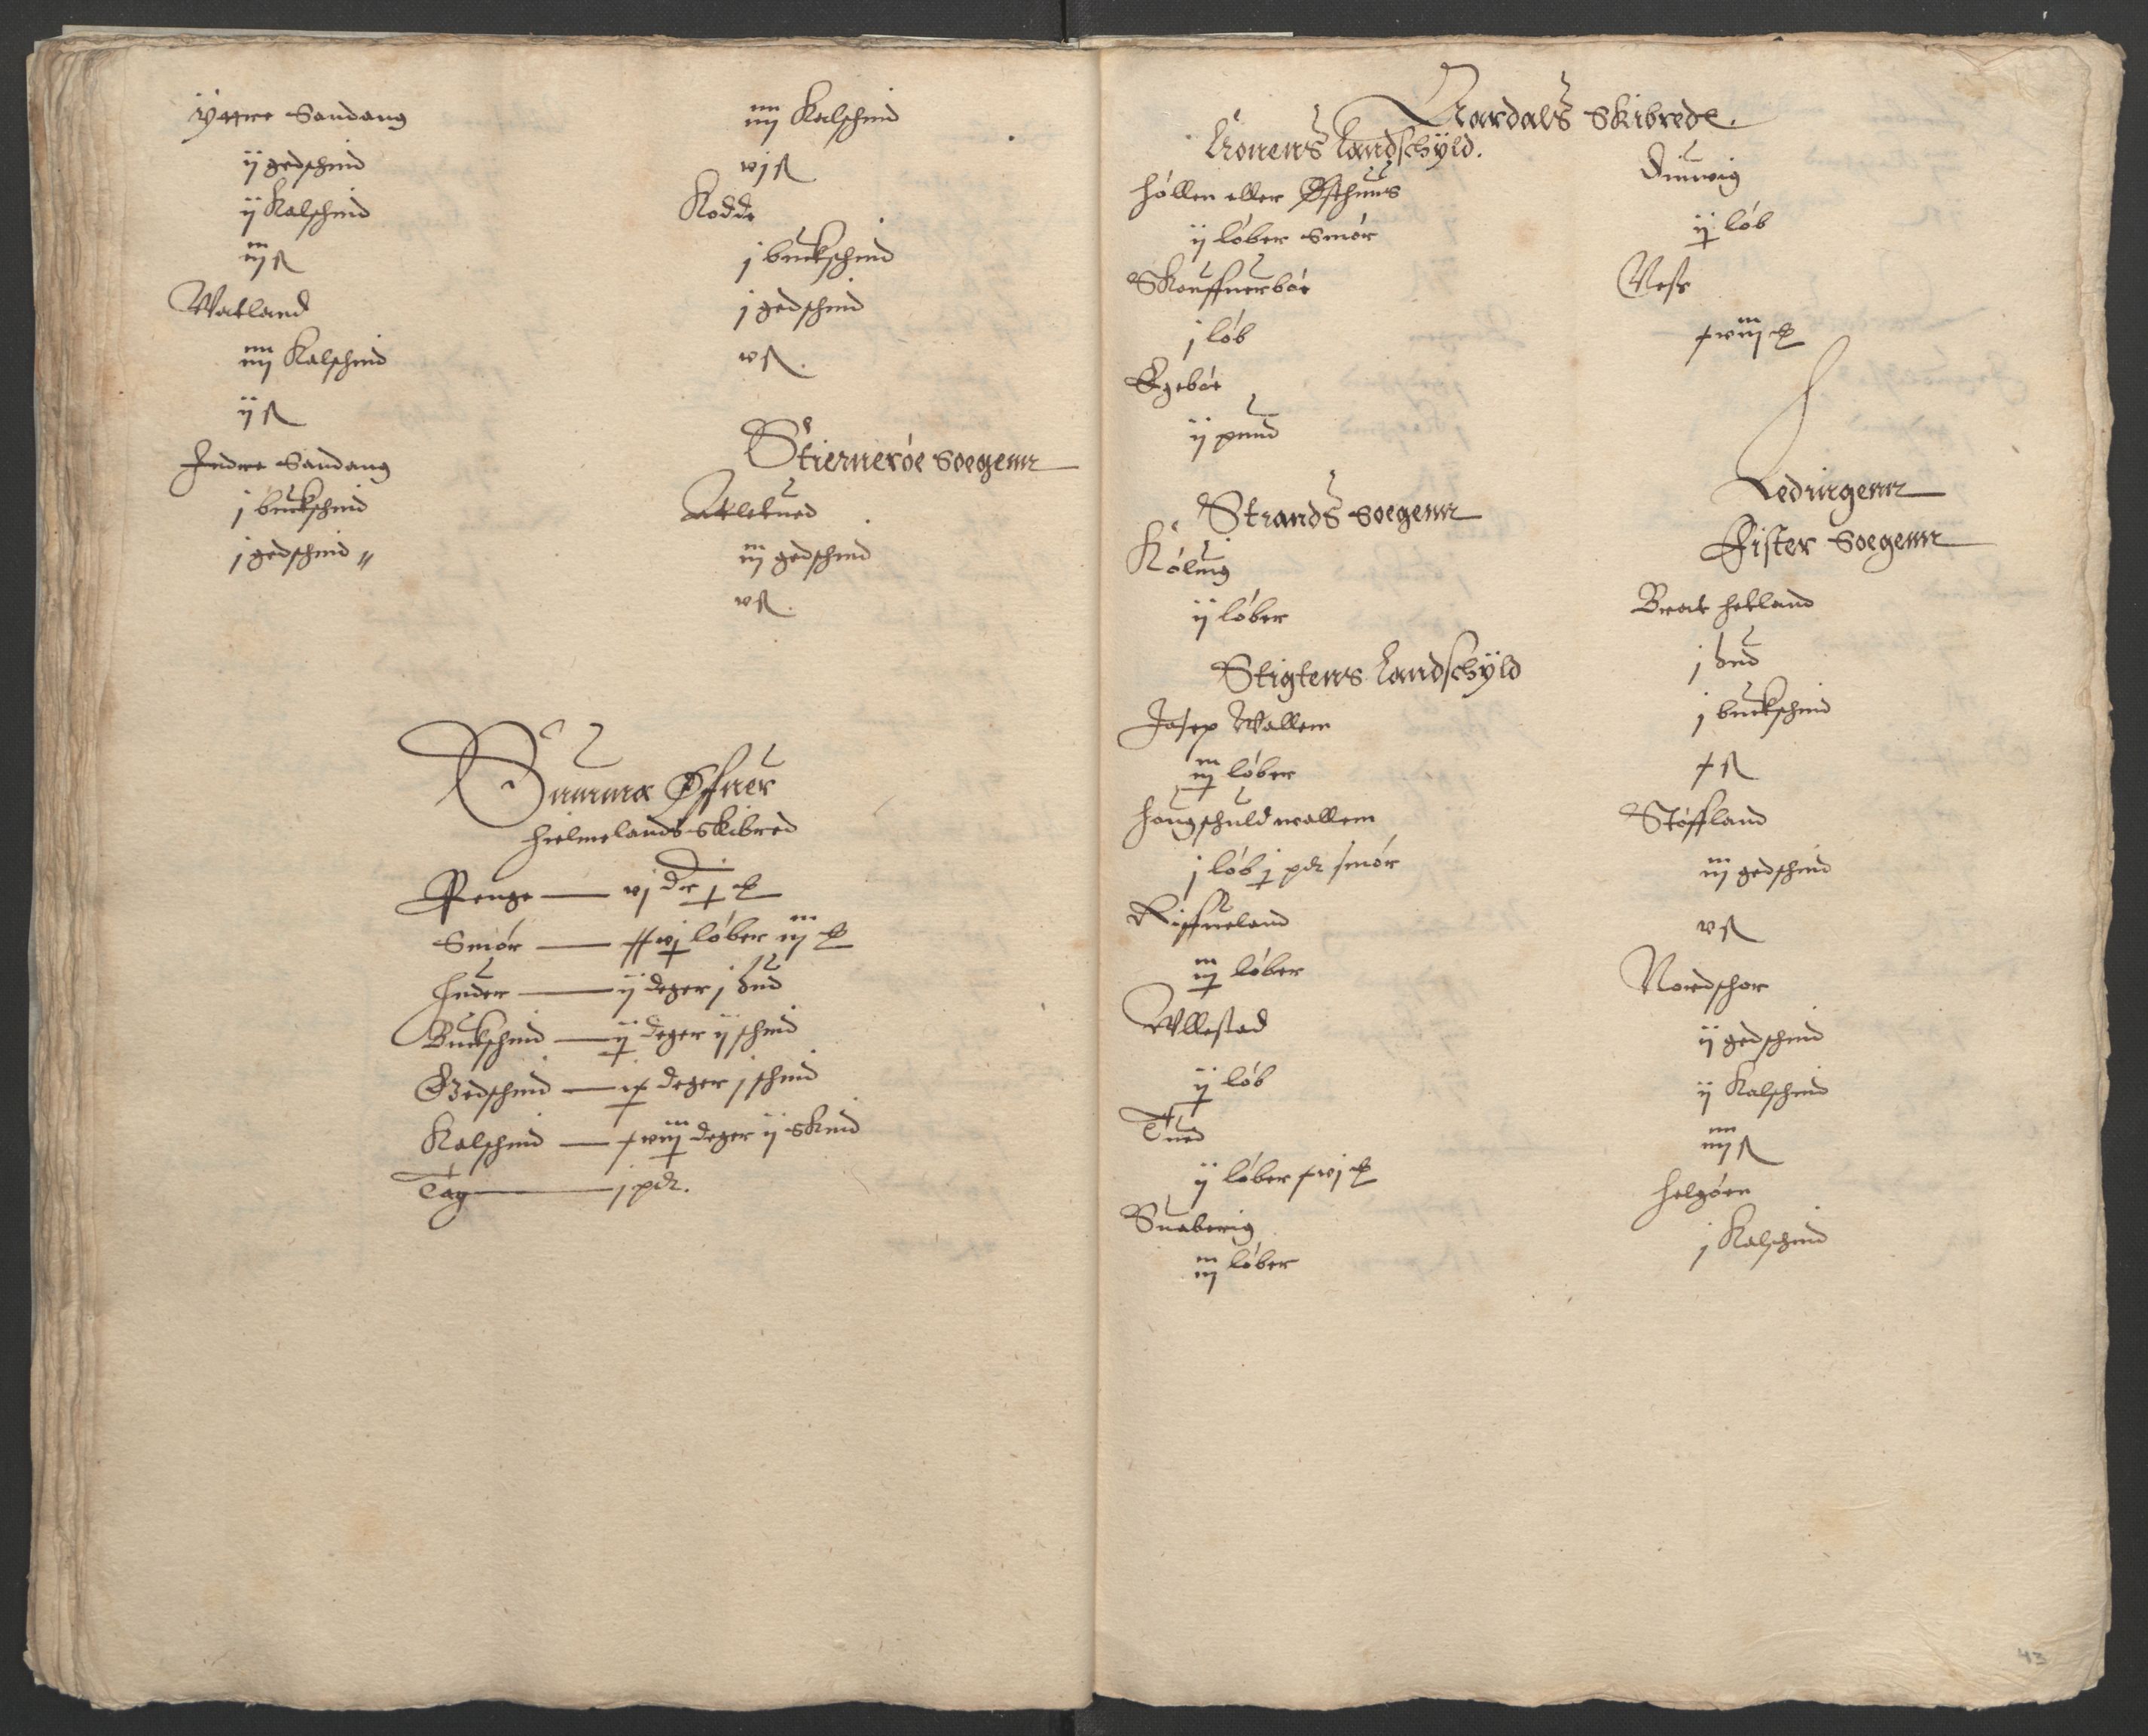 Yttre Sandang
ij gedschind
ij Kalschind
iij ß
Watland
iiij Kalschind
ij ß
Indre Sandang
j buckschind
j gedschind
iiij Kalschind
vj ß
Kodde
j buckschind
j gedschind
v ß.
Stiernerøe Soegenn
Atletued
iij gedschind
v ß.
Summa Offuer
Hielmelands Skibred
Penge — vj dr
Smør — løber iij
Huder — ij deger j hud
Buckschind — deger ij schind
Gedschind — deger j schind
Kalschind — deger ij Skind
Tag — j pd.
Aardals Skibrede.
Cronens Landschÿld.
Høllen eller Østhuus
ij løber Smør
Skouffuerbøe
j løb
Egebøe
ij pund
Strands Soegenn
Køluig
ij løber
Stigtens Landschÿld
Josep Wallem
løber
Haugschuld Wallem
j løb pd smør
Riffueland
løber
Wllestad
løb
Tued
ij løber xvj
Suaberig
iij løber
løb
Nese
xviij
Ledingenn
Fister Soegenn
Brat Hetland
j hud
j buckschind
x ß
Støffland
iij gedschind
v ß
Nordschor
ij gedschind
ij Kalschind
iiij ß
Helgøen
j Kalschind
43